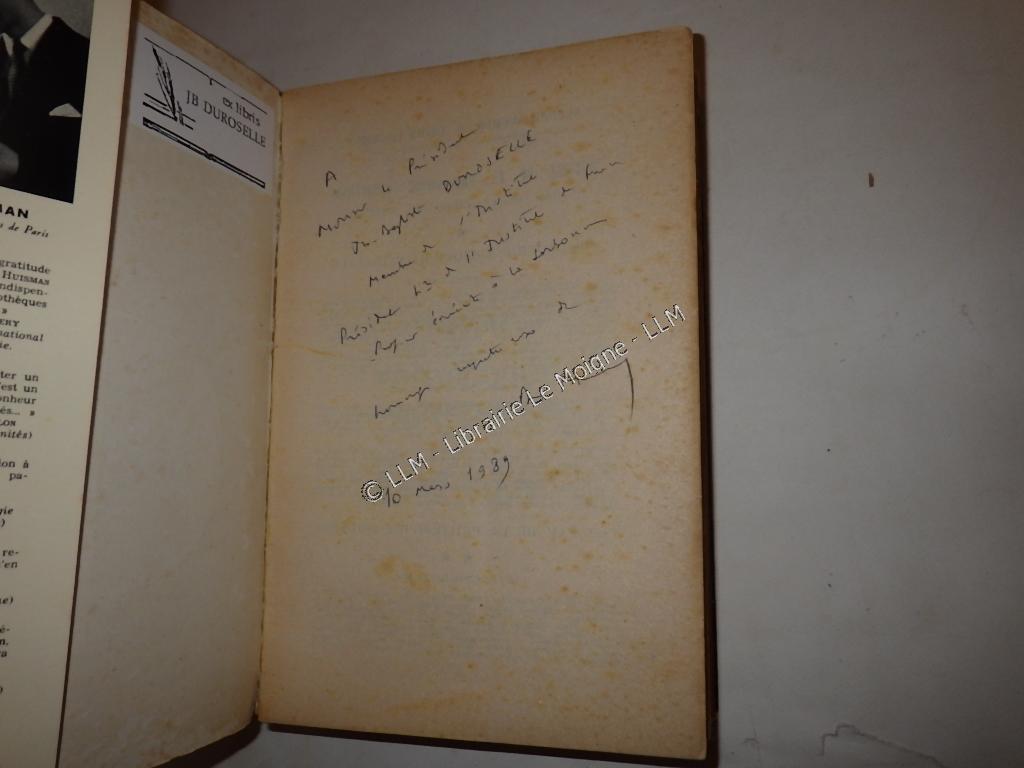 MAN
s de Paris
gratitude
HUISMAN
ndispen-
othèques
»
ERY
national
ie.
ter un
'est un
onheur
és... »
LON
nités)
ion à
pa-
gie
)
re-
'en
ne)
é-
n.
ra
)
ex libris
JB DUROSELLE
A
Monsieur le Président
J.B. Baptiste DUROSELLE
Membre de l'Institut
Président de l'Institut de
à la Sorbonne
hommage de
10 mars 1989
© LLM - Librairie Le Moigne - LLM